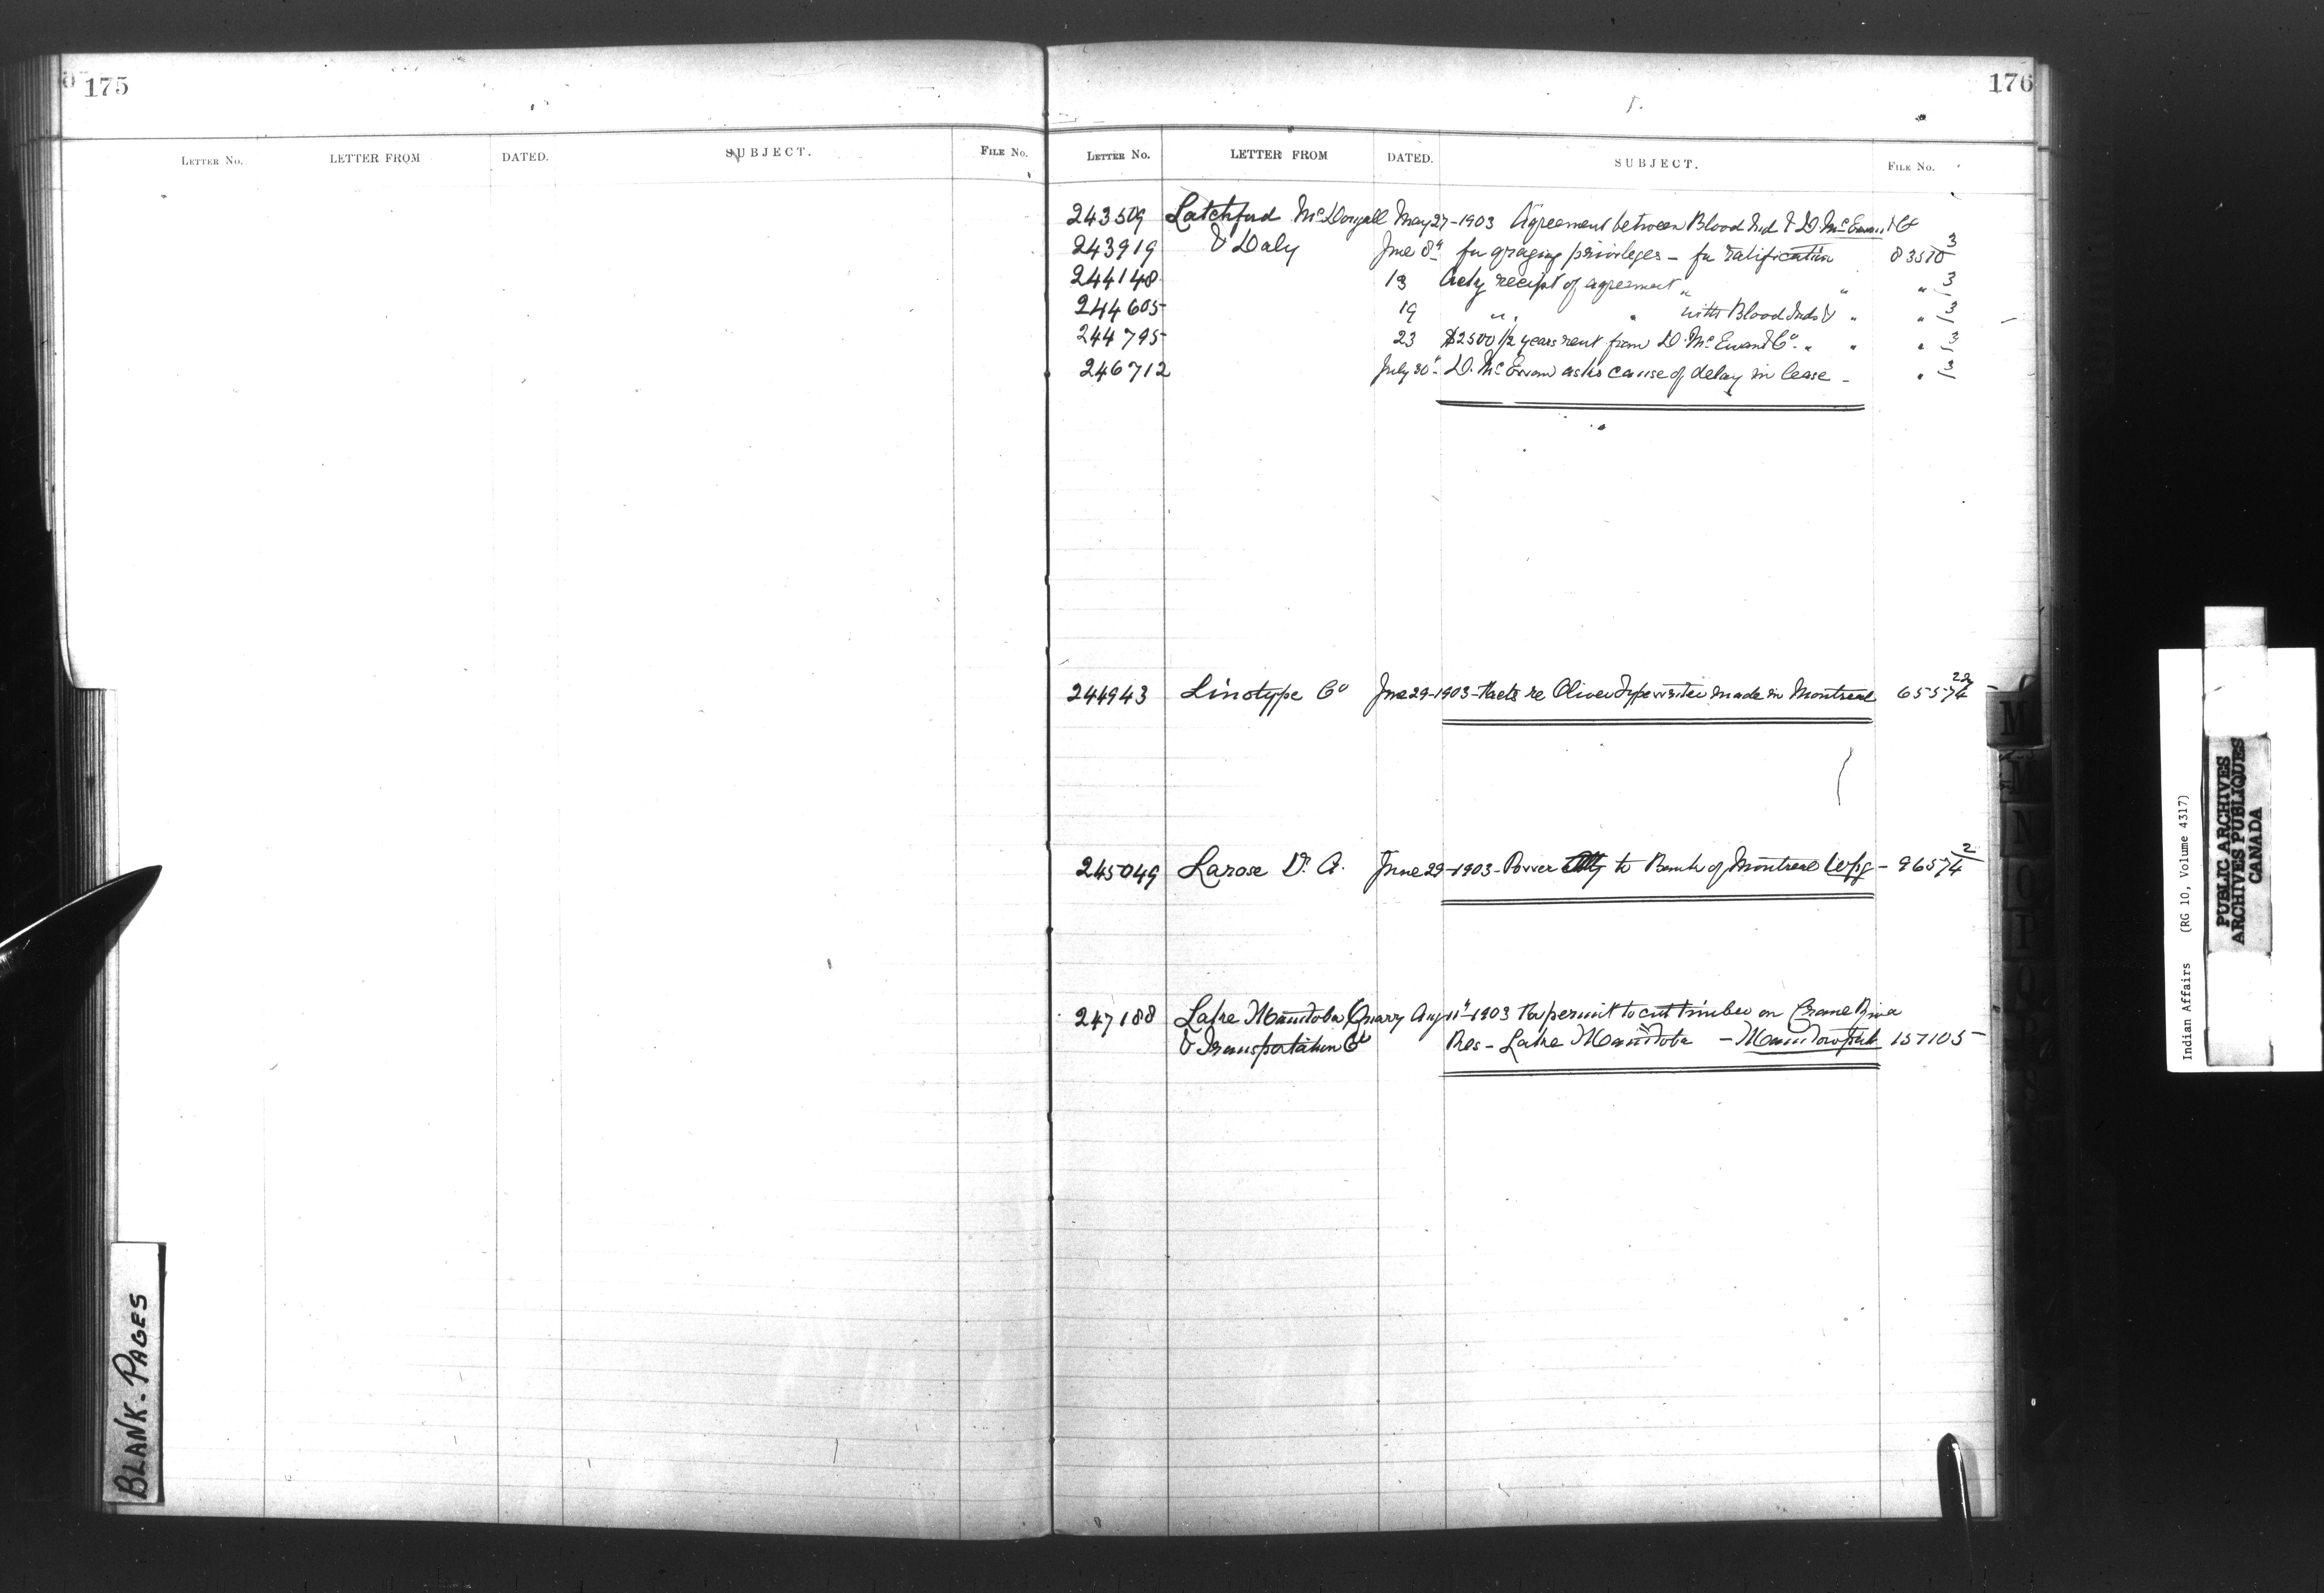 175
LETTER NO. LETTER FROM DATED. SUBJECT. FILE NO.
BLANK-PAGES
176
LETTER NO. LETTER FROM DATED. SUBJECT. FILE NO.
243509 Latchford McDougall May 27-1903 Agreement between Blood Ind & D. McEwan & Co
243919 & Daly June 8" for grazing privileges - for ratification 83570 3
244148 13 Ackg receipt of agreement " " " /3
244605 19 " " with Blood Inds & " " /3
244795 23 $2500 1/2 years rent from D. McEwan & Co. " " " /3
246712 July 30" D. McEwan asks cause of delay in lease - " /3
244943 Linotype Co June 29-1903- re Oliver Typewriter made in Montreal 65574 22
245049 Larose D. A. June 29-1903- Power Atty to Bank of Montreal Wpg - 96574 2
247188 Lake Manitoba Quarry Aug 11"-1903 For permit to cut timber on Crane River
& Transportation Co Res - Lake Manitoba - 157105
M
M
N
O
P
Q
R
S
Indian Affairs (RG 10, Volume 4317)
PUBLIC ARCHIVES
ARCHIVES PUBLIQUES
CANADA